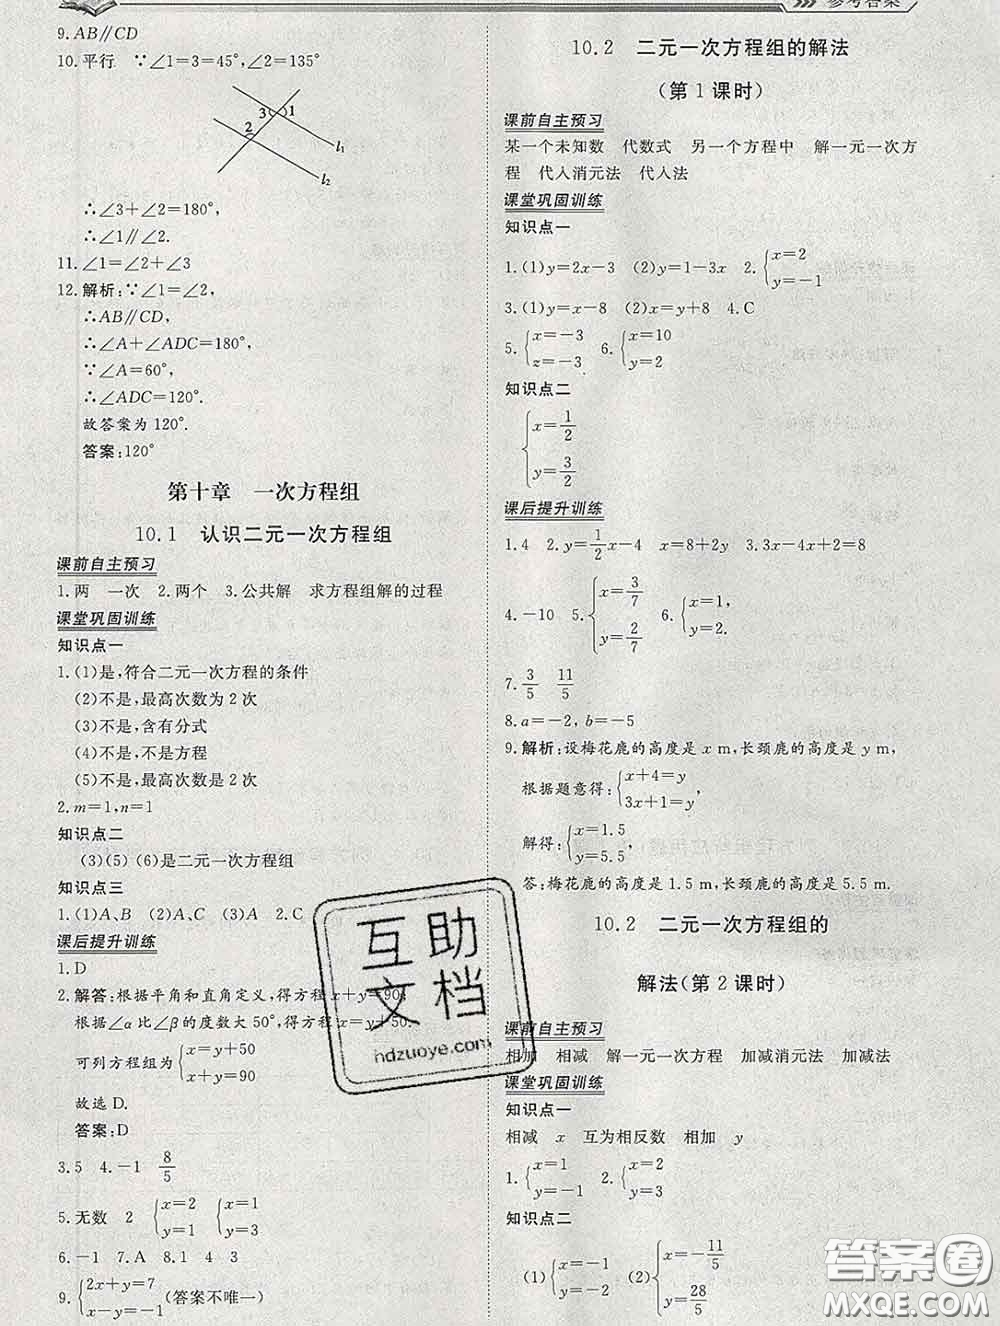 参考答案
9. AB∥CD
10. 平行　∵∠1=3=45°,∠2=135°
3 1
2
l₁
l₂
∴∠3+∠2=180°,
∴∠1∥∠2.
11. ∠1=∠2+∠3
12. 解析:∵∠1=∠2,
∴AB∥CD,
∴∠A+∠ADC=180°,
∵∠A=60°,
∴∠ADC=120°.
故答案为 120°.
答案:120°
第十章　一次方程组
10.1　认识二元一次方程组
课前自主预习
1. 两　一次　2. 两个　3. 公共解　求方程组解的过程
课堂巩固训练
知识点一
1. (1)是,符合二元一次方程的条件
(2)不是,最高次数为 2 次
(3)不是,含有分式
(4)不是,不是方程
(5)不是,最高次数是 2 次
2. m=1,n=1
知识点二
(3)(5) (6)是二元一次方程组
知识点三
1. (1)A、B　(2)A、C　(3)A　2. C
课后提升训练
1. D
2. 解答:根据平角和直角定义,得方程 x+y=90;
根据∠α比∠β的度数大 50°,得方程 x=y+50.
可列方程组为{x=y+50
x+y=90
故选 D.
答案:D
3. 5　4. -1　8/5
5. 无数　2　{x=2　{x=4
y=1　y=3
6. -1　7. A　8. 1　4　3
9. {2x+y=7
x-y=-1 (答案不唯一)
10.2　二元一次方程组的解法
(第 1 课时)
课前自主预习
某一个未知数　代数式　另一个方程中　解一元一次方
程　代入消元法　代入法
课堂巩固训练
知识点一
1. (1)y=2x-3　(2)y=1-3x　2. {x=2
y=-1
3. (1)y=x-8　(2)x=y+8　4. C
5. {x=-3　6. {x=10
z=-3　y=2
知识点二
{x=1/2
y=3/2
课后提升训练
1. 4　2. y=1/2x-4　x=8+2y　3. 3x-4x+2=8
4. -10　5. {x=3/7　6. {x=1,
y=2/7　y=2.
7. 3/5　11/5
8. a=-2, b=-5
9. 解析:设梅花鹿的高度是 x m,长颈鹿的高度是 y m,
根据题意得:{x+4=y
3x+1=y,
解得:{x=1.5
y=5.5,
答:梅花鹿的高度是 1.5 m,长颈鹿的高度是 5.5 m.
10.2　二元一次方程组的
解法(第 2 课时)
课前自主预习
相加　相减　解一元一次方程　加减消元法　加减法
课堂巩固训练
知识点一
相减　x　互为相反数　相加　y
1. {x=1　2. {x=3
y=-1　y=-1
知识点二
(1){x=2　(2){x=-11/5
y=-1　y=28/5
互助
文档
hdzuoye.com
答案圈
MXQE.COM